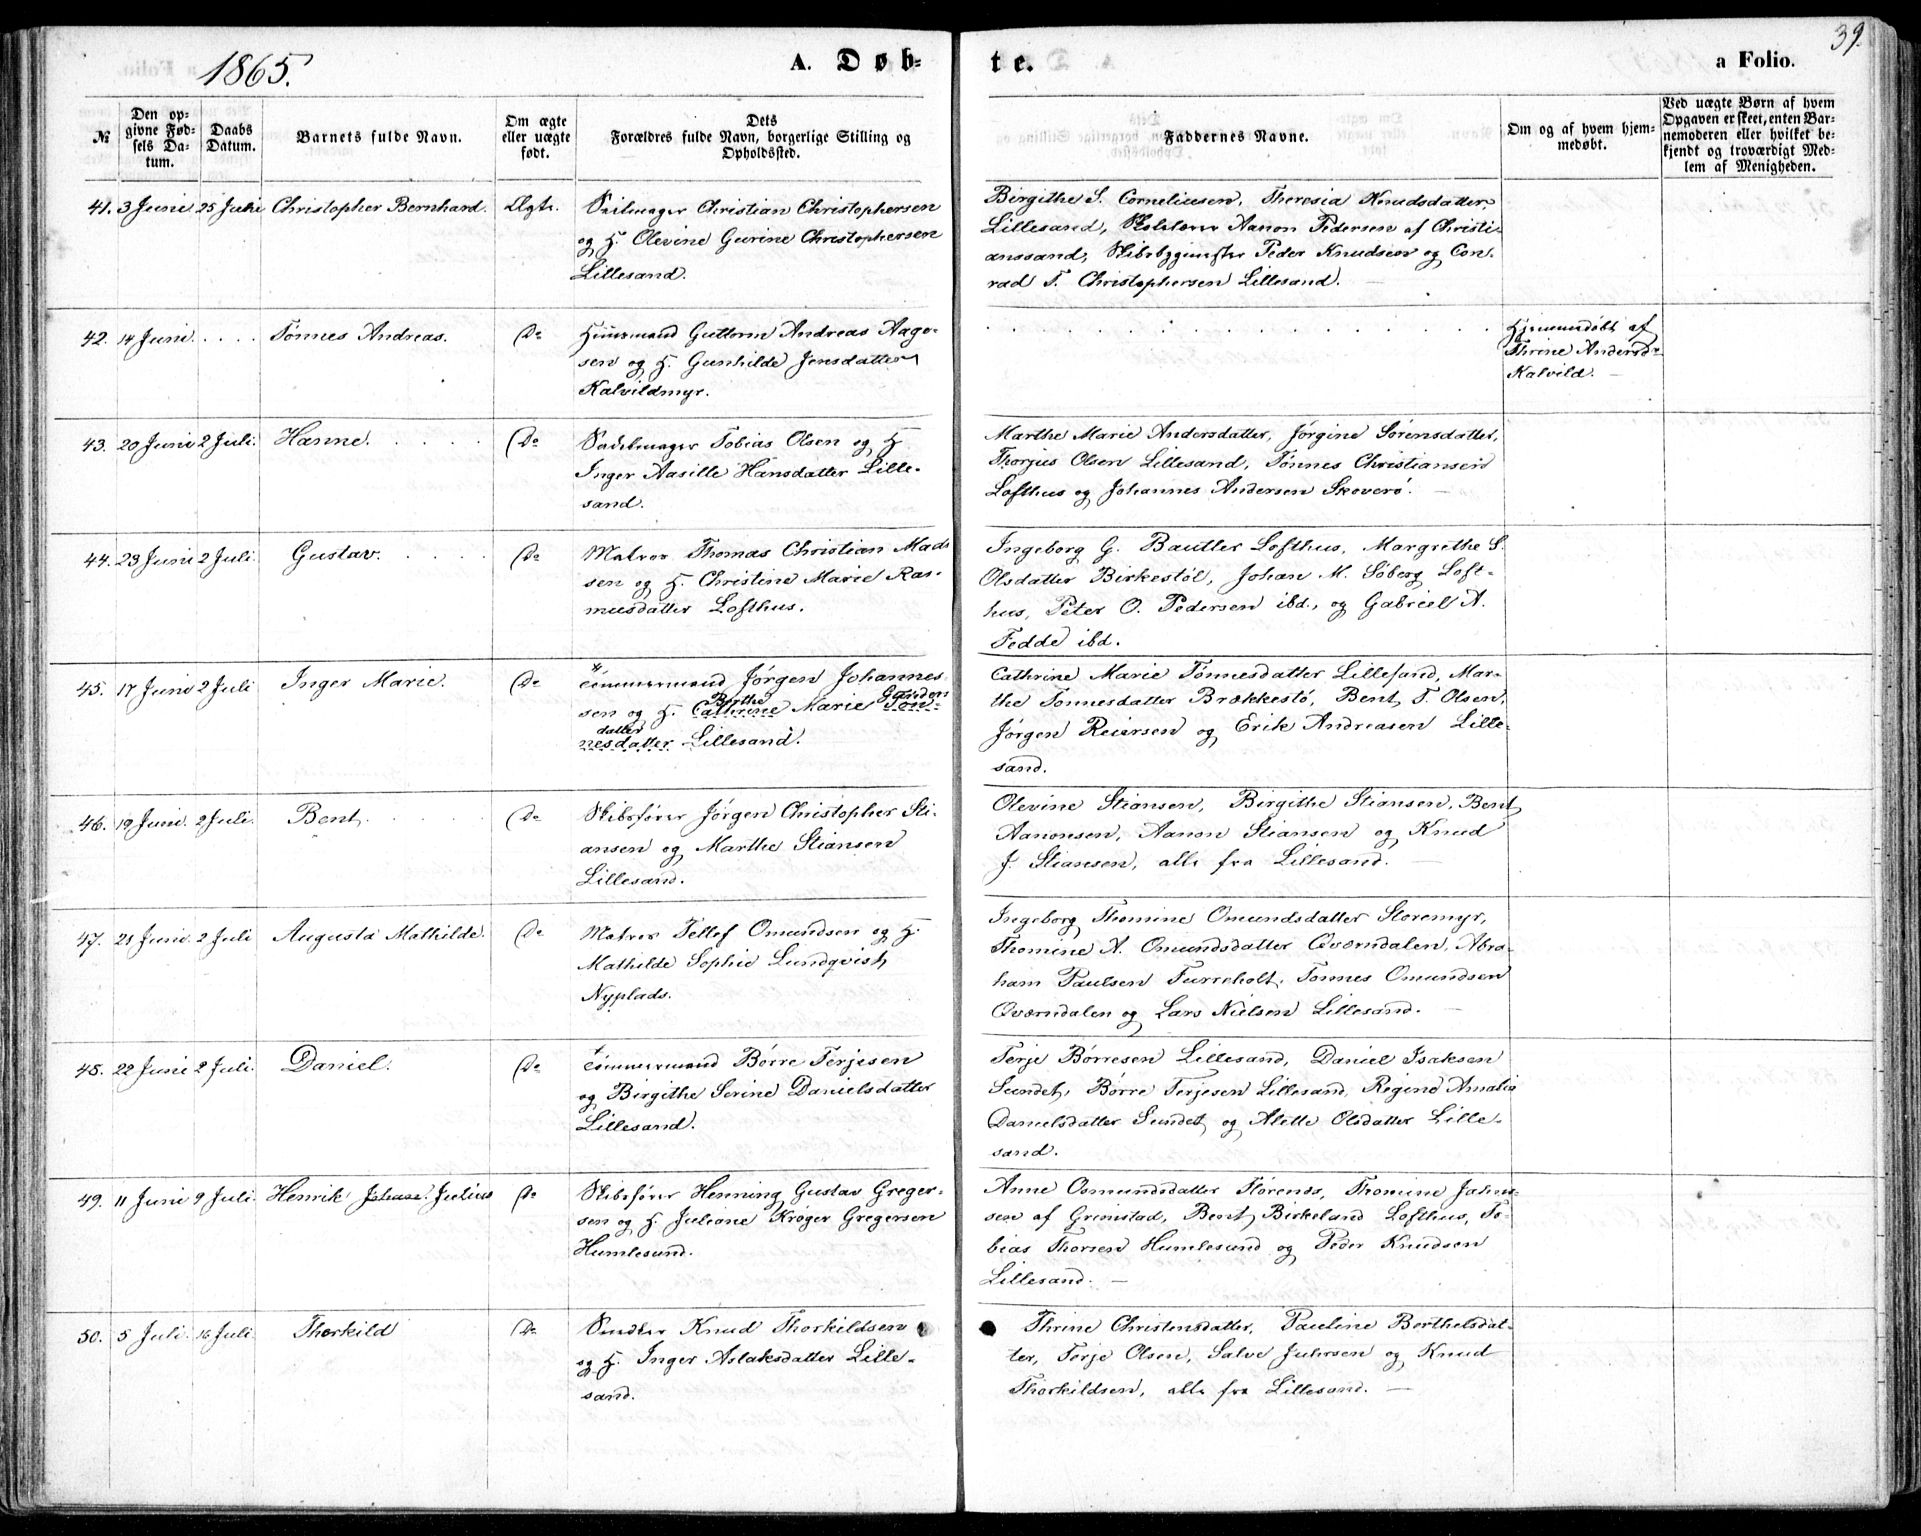 1865.
A. Døb-
te.
a Folio.
39.
№
Den op-
givne Fød-
sels Da-
tum.
Daabs
Datum.
Barnets fulde Navn.
Om ægte
eller uægte
født.
Dets
Forældres fulde Navn, borgerlige Stilling og
Opholdssted.
Faddernes Navne.
Om og af hvem hjem-
medøbt.
Ved uægte Børn af hvem
Opgaven er skeet, enten Bar-
nemoderen eller hvilket be-
kjendt og troværdigt Med-
lem af Menigheden.
41. 3 Juni 25 Juni Christopher Bernhard. Ægte. Seilmager Christian Christophersen
og H. Olevine Gurine Christophersen
Lillesand.
Birgithe S. Corneliusen, Theresia Knudsdatter
Lillesand, Skolelærer Aanon Pedersen af Christi-
anssand, Skibsbygmester Peder Knudsen og Con-
rad T. Christophersen Lillesand.
42. 14 Juni . . . . Tønnes Andreas. Do Huusmand Guttorm Andreas Aage-
sen og H. Gunhilde Jensdatter
Kalvildmyr.
Hjemmedøbt af
Thrine Andersd.
Kalvild.
43. 20 Juni 2 Juli. Hanne. Do Sadelmager Tobias Olsen og H
Inger Aasille Hansdatter Lille-
sand.
Marthe Marie Andersdatter, Jørgine Sørensdatter,
Thorjus Olsen Lillesand, Tønnes Christiansen
Lofthus og Johannes Andersen Skoverø.
44. 23 Juni 2 Juli. Gustav. Do Matros Thomas Christian Mad-
sen og H. Christine Marie Ras-
musdatter Lofthus.
Ingeborg G. Bautler Lofthus, Margrethe S.
Olsdatter Birkestøl, Johan M. Søberg Loft-
hus, Peter O. Pedersen ibd., og Gabriel A.
Fedde ibd.
45. 17 Juni 2 Juli Inger Marie. Do Tømmermand Jørgen Johannes-
Birthe Gunders
sen og H. Cathrine Marie Tøn-
datter
nesdatter Lillesand.
Cathrine Marie Tønnesdatter Lillesand, Mar-
the Tønnesdatter Brækkestø, Bent T. Olsen,
Jørgen Reiersen og Erik Andreasen Lille-
sand.
46. 19 Juni. 2 Juli. Bent. Do Skibsfører Jørgen Christopher Sti-
ansen og Marthe Stiansen
Lillesand.
Olevine Stiansen, Birgithe Stiansen, Bent
Aanonsen, Aanon Stiansen og Knud
J. Stiansen, alle fra Lillesand.
47. 21 Juni. 2 Juli Augusta Mathilde. Do Matros Tellef Omundsen og H.
Mathilde Sophie Lundqvist,
Nyplads.
Ingeborg Thomine Omundsdatter Storemyr,
Thomine A. Omundsdatter Qværndalen, Abra-
ham Paulsen Furreholt, Tønnes Omundsen
Qværndalen og Lars Nielsen Lillesand.
48. 22 Juni 2 Juli. Daniel. Do Tømmermand Børre Terjesen
og Birgithe Serine Danielsdatter
Lillesand.
Terje Børresen Lillesand, Daniel Isaksen
Sundet, Børre Terjesen Lillesand, Regine Amalie
Danielsdatter Sundet og Alette Olsdatter Lille-
sand.
49. 11 Juni 9 Juli. Henrik Julius Do Skibsfører Henning Gustav Greger-
sen og H. Juliane Krøger Gregersen
Humlesund.
Anne Osmundsdatter Florenes, Thomine Johns-
sen af Grimstad, Bent Birkeland Lofthus, To-
bias Thorsen Humlesund og Peder Knudsen
Lillesand.
50. 5 Juli. 16 Juli. Thorkild Do Smedker Knud Thorkildsen
og H. Inger Aslaksdatter Lille-
sand.
Thrine Christensdatter, Pauline Berthelsdat-
ter, Terje Olsen, Salve Juhrsen og Knud
Thorkildsen, alle fra Lillesand.